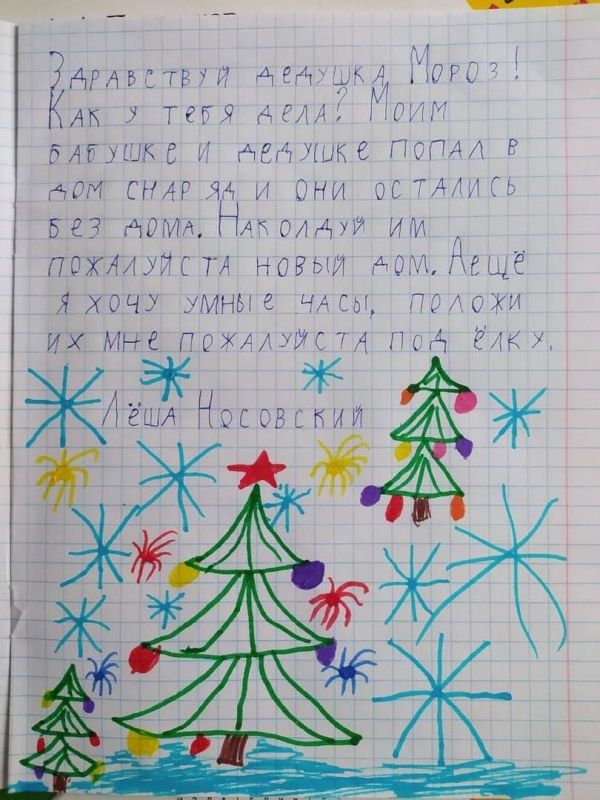 Здравствуй дедушка Мороз!
Как у тебя дела? Моим
бабушке и дедушке попал в
дом снаряд и они остались
без дома. Наколдуй им
пожалуйста новый дом. А ещё
я хочу умные часы, положи
их мне пожалуйста под ёлку.
Лёша Носовский